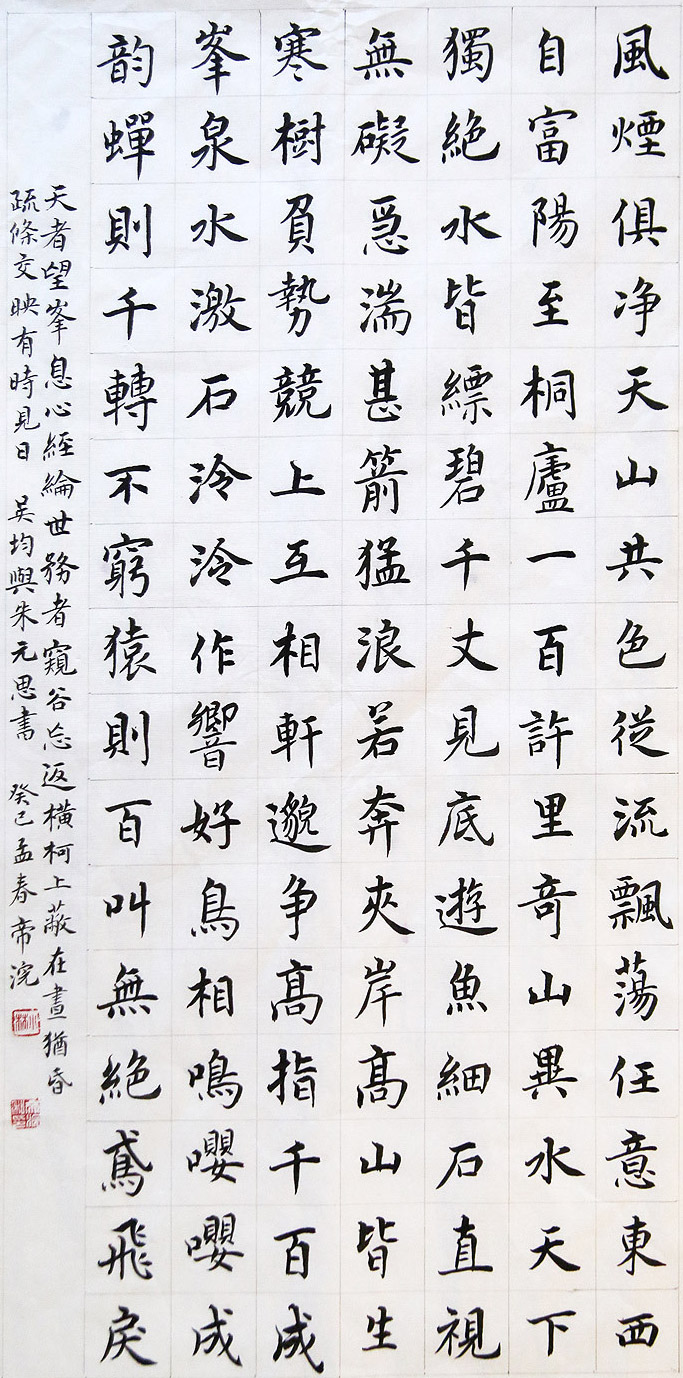 風煙俱净天山共色従流飄蕩任意東西
自富陽至桐廬一百許里奇山異水天下
獨絶水皆縹碧千丈見底遊魚細石直視
無礙急湍甚箭猛浪若奔夾岸髙山皆生
寒樹負勢競上互相軒邈争髙指千百成
峯泉水激石泠泠作響好鳥相鳴嚶嚶成
韵蟬則千轉不窮猿則百叫無絶鳶飛戾
天者望峯息心經綸世務者窺谷忘返橫柯上蔽在晝猶昏
疏條交映有時見日 吴均與朱元思書 癸巳孟春帝浣